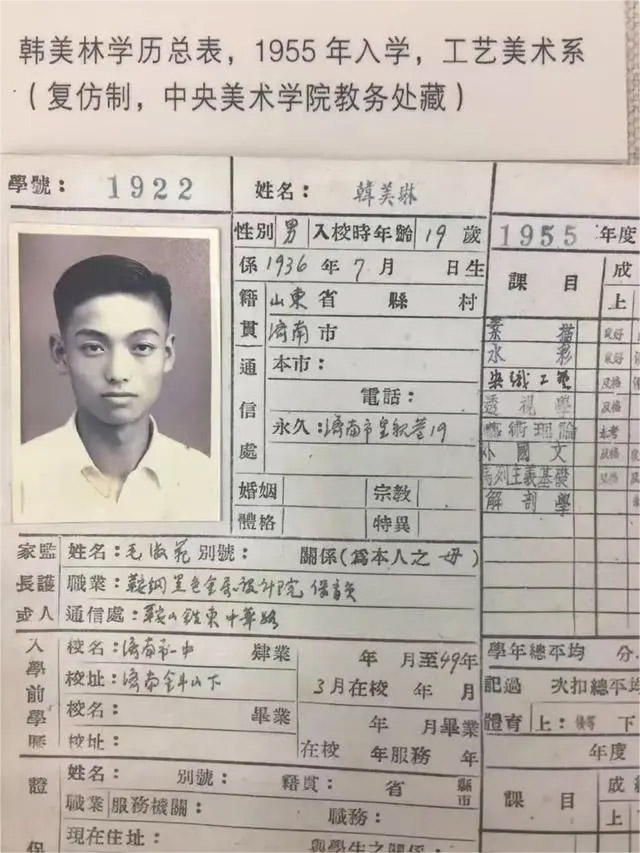 韩美林学历总表，1955年入学，工艺美术系
（复仿制，中央美术学院教务处藏）
學號：1922
姓名：韓美琳
性别 男 入校時年齡 19 歲
係1936年7月 日生
籍貫 山東省 縣 村
濟南市
通信處 本市：
電話：
永久：濟南市皇親巷19
婚姻 宗教
體格 特異
家長或監護人 姓名：毛淑苑 别號： 關係(爲本人之母)
職業：鞍鋼黑色金屬設計院 保育員
通信處：鞍山鉄東中華路
入學前學歷 校名：濟南一中 肄業 年 月至49年
校址：濟南金牛山下 3月在校 年 月
校名： 畢業 年 月畢業
校址： 在校 年服務 年
證 保
姓名： 别號： 籍貫： 省 縣市
職業 服務機關： 職務：
現在住址： 與學生之關係：
1955 年度
課目 成
上
素描 良好
水彩 良好
染織工藝 及格
透視學 及格
藝術理論 未考
外國文 及格
馬列主義基礎 及格
解剖學
學年總平均 分
記過 次扣總平均
體育 上： 下
年度
課目 成績
上